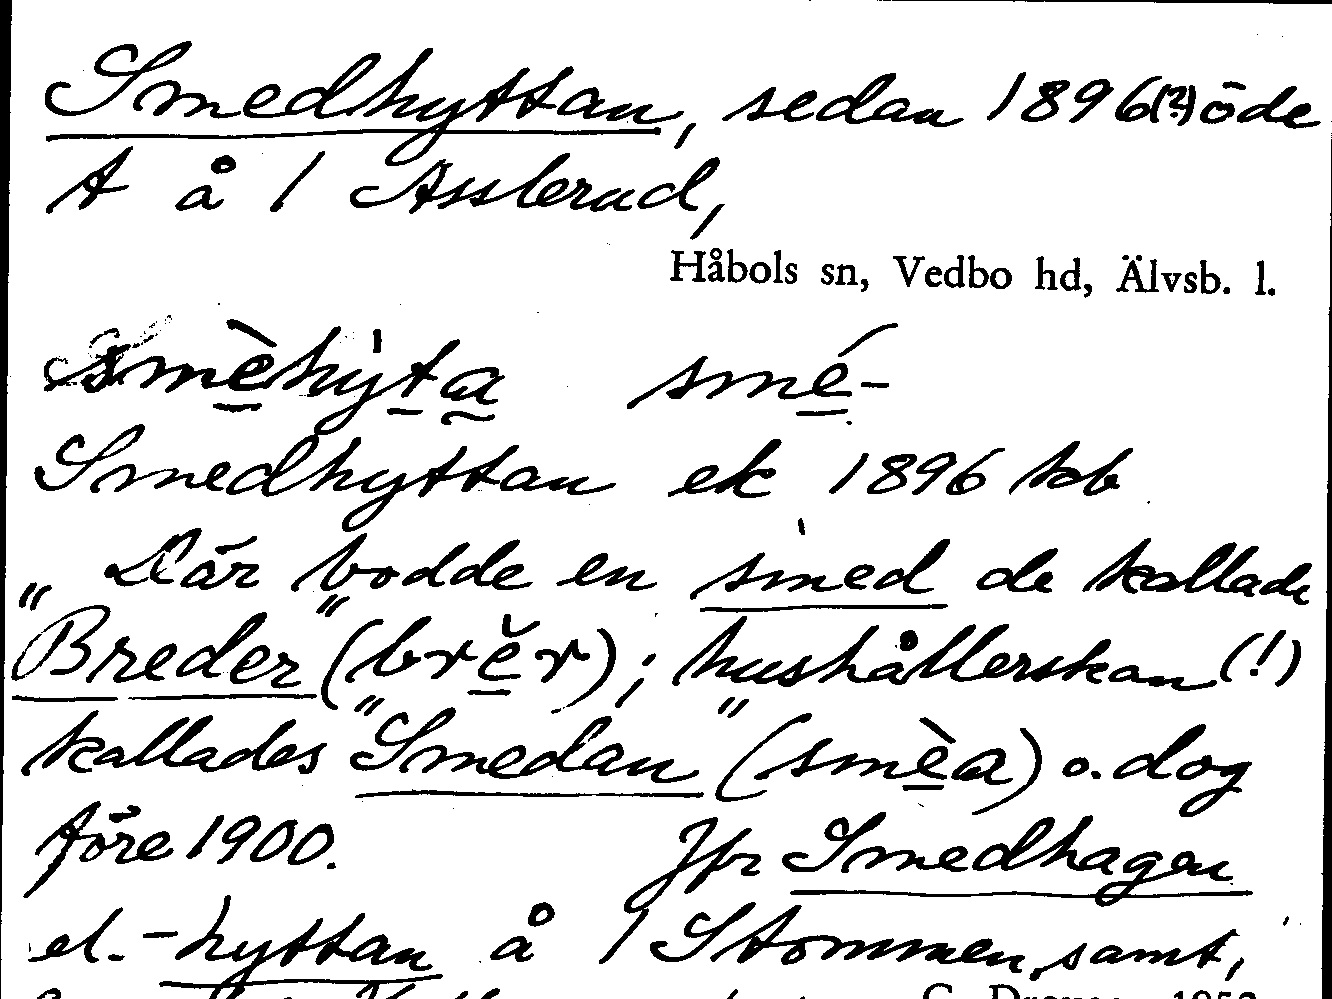 Smedhyttan, sedan 1896(?) öde
t å 1 Asslerud,
Håbols sn, Vedbo hd, Älvsb. l.
smèhyta smé-
Smedhyttan ek 1896 kb
Där bodde en smed de kallade
"Breder" (brĕr); hushållerskan (!)
kallades "Smedan" (smèa) o. dog
före 1900. Jfr Smedhagen
el. -hyttan å 1 Stommen, samt,